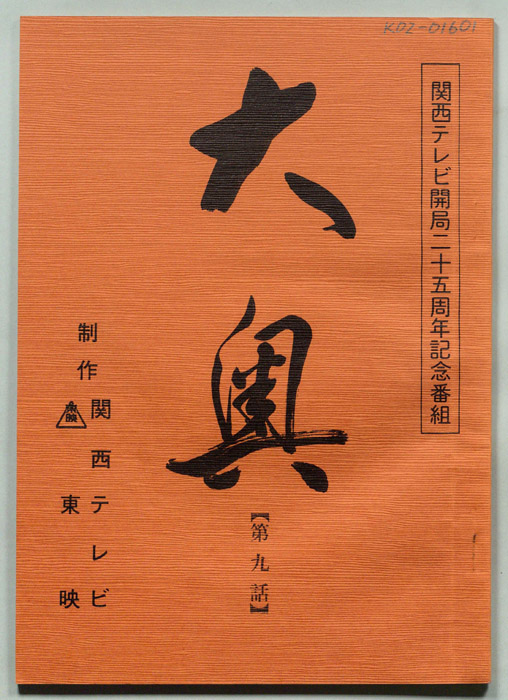 KDZ-01601
関西テレビ開局二十五周年記念番組
大奥
【第九話】
制作
関西テレビ
東映
東映